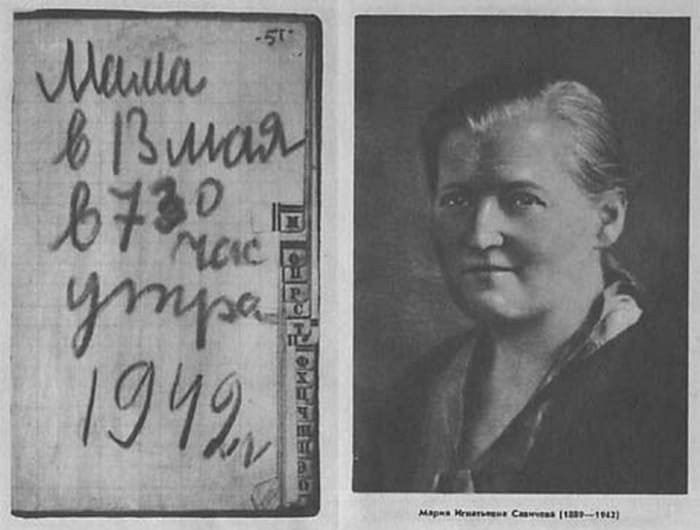 -51-
Мама
в 13 мая
в 7 30
час
утра
1942 г
М
О
П
Р
С
Т
У
Ф
Х
Ц
Ч
Ш
Щ
Э
Ю
Мария Игнатьевна Савичева (1889—1942)